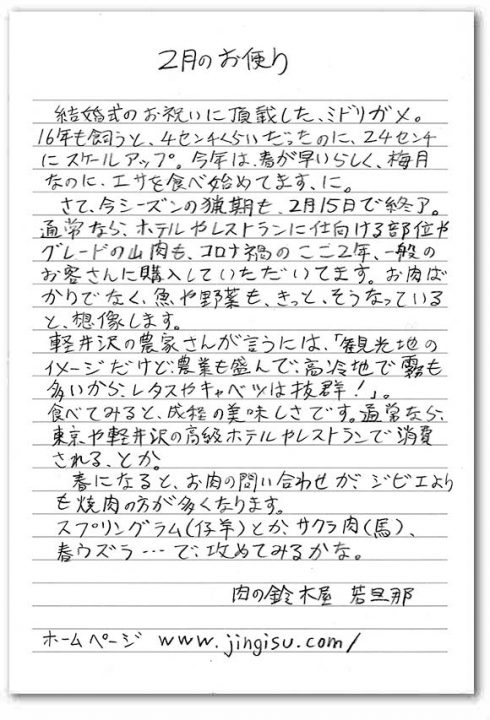 2月のお便り
結婚式のお祝いに頂載した、ミドリガメ。
16年も飼うと、4センチくらいだったのに、24センチ
にスケールアップ。今年は、春が早いらしく、梅月
なのに、エサを食べ始めてます、に。
さて、今シーズンの猟期も、2月15日で終了。
通常なら、ホテルやレストランに仕向ける部位や
グレードの山肉も、コロナ禍のここ2年、一般の
お客さんに購入していただいてます。お肉ば
かりでなく、魚や野菜も、きっと、そうなっている
と、想像します。
軽井沢の農家さんが言うには、「観光地の
イメージだけど農業も盛んで、高冷地で霧も
多いから、レタスやキャベツは抜群!」。
食べてみると、成程の美味しさです。通常なら、
東京や軽井沢の高級ホテルやレストランで消費
される、とか。
春になると、お肉の問い合わせが、ジビエより
も焼肉の方が多くなります。
スプリングラム(仔羊)とか、サクラ肉(馬)、
春ウズラ…で、攻めてみるかな。
肉の鈴木屋 若旦那
ホームページ www.jingisu.com/